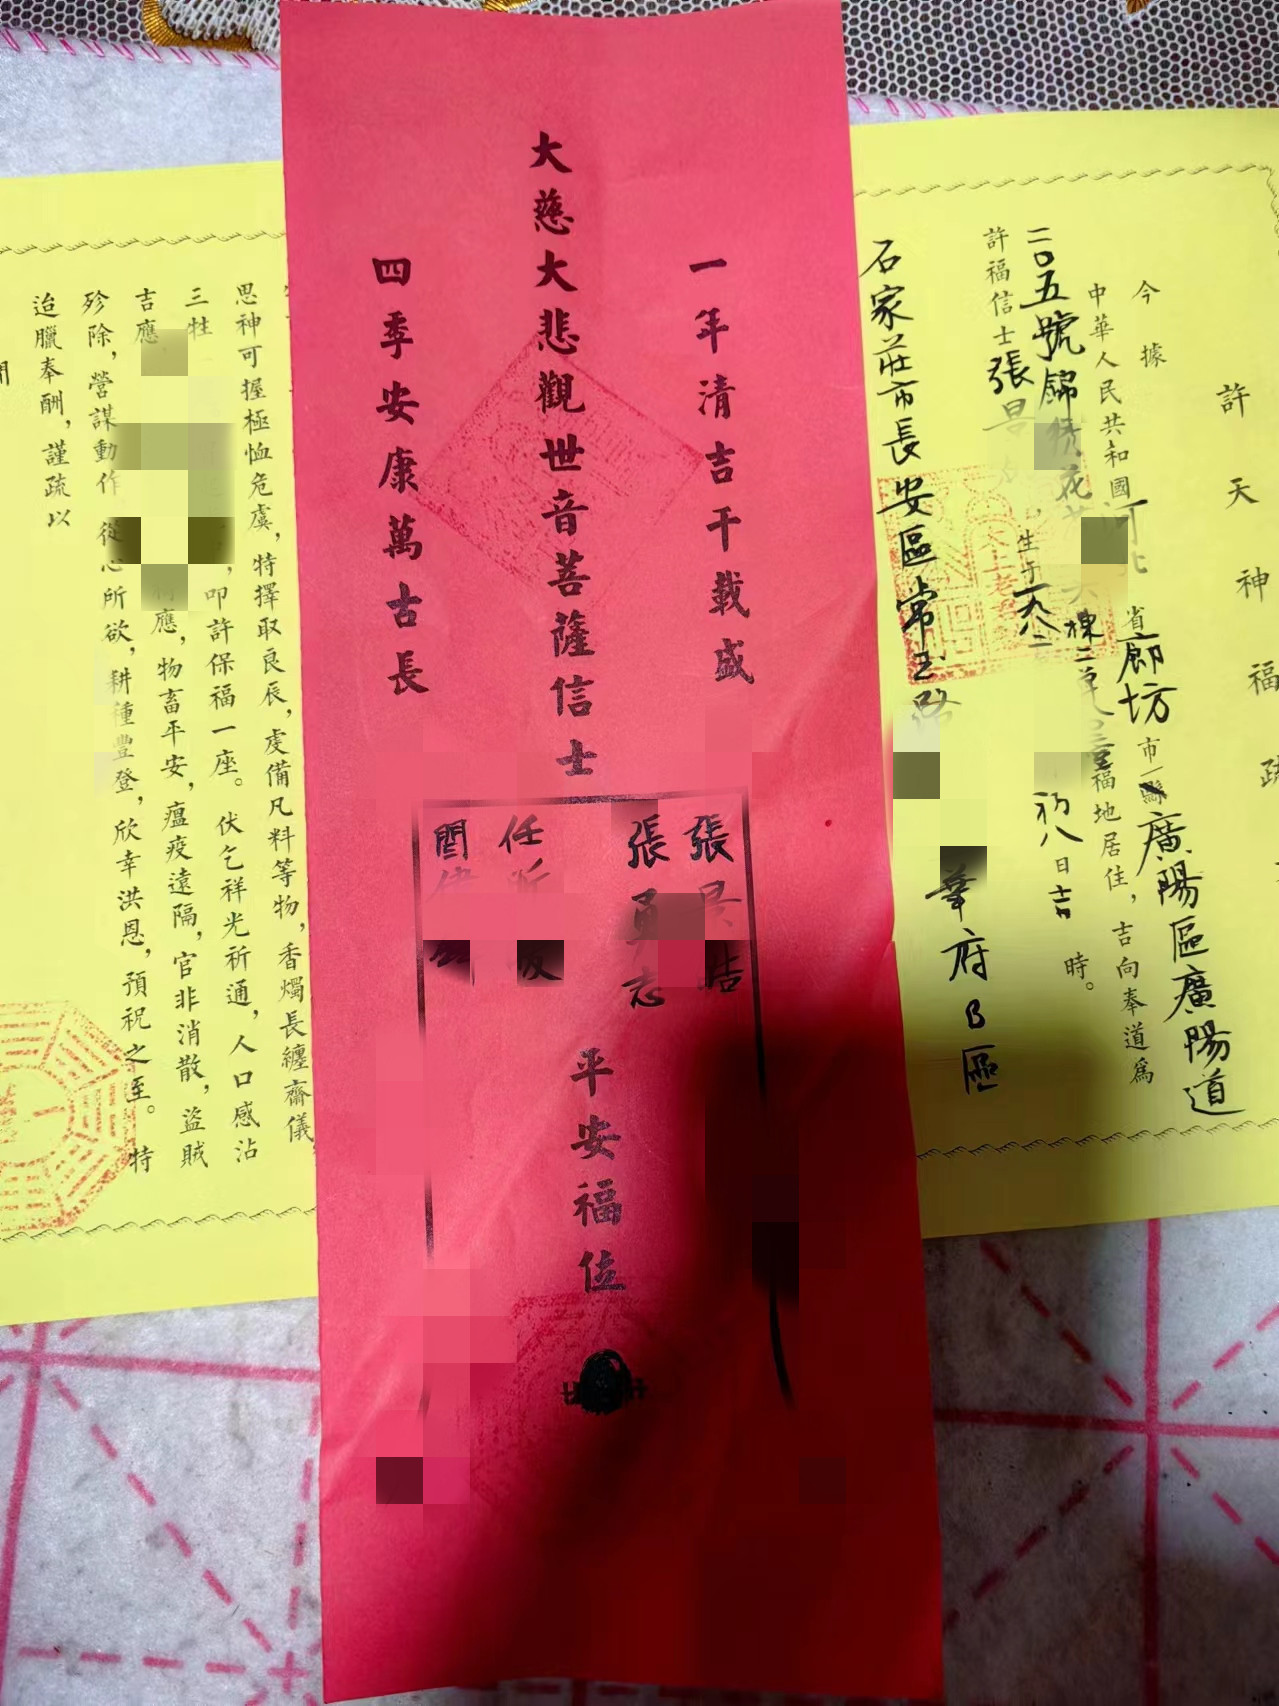 許天神福疏
今據
中華人民共和國河北省廊坊市縣廣陽區廣陽道
二〇五號錦綉花
棟二單
福地居住，吉向奉道爲
許福信士張
生于一九八二
初八日吉時。
石家莊市長安區常玉路
華府B區
一年清吉千載盛
大慈大悲觀世音菩薩信士
張
張
志
任
閆
平安福位
四季安康萬古長
思神可握極恤危虞，特擇取良辰，虔備凡料等物，香燭長纏齋儀，
三牲
叩許保福一座。伏乞祥光祈通，人口感沾
吉應
應，物畜平安，瘟疫遠隔，官非消散，盜賊
殄除，營謀動作
從心所欲，耕種豐登，欣幸洪恩，預祝之至。特
迨臘奉酬，謹疏以